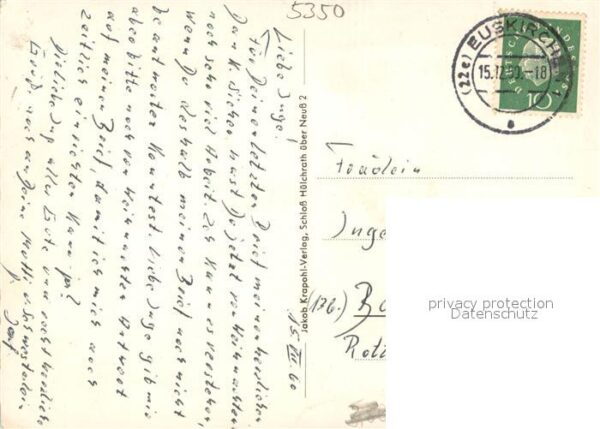 5350
Liebe Inge!
Für Deinen letzten Brief meinen herzlichen
Dank. Sicher hast Du jetzt vor Weihnachten
noch sehr viel Arbeit. Ich kann es verstehen,
wenn Du deshalb meinen Brief noch nicht
beantworten konntest. Liebe Inge gib mir
aber bitte noch vor Weihnachten Antwort
auf meinen Brief, damit ich mich auch
zeitlich einrichten kann ja?
Dir liebe Inge alles Gute und recht herzliche
Grüße auch an Deine Mutti u. Schwesterlein
15. XII. 60
Jakob Krapohl-Verlag, Schloß Hülchrath über Neuß 2
(22c) EUSKIRCHEN
15.12.60.-18
a
10
Fräulein
Inge
privacy protection
Datenschutz